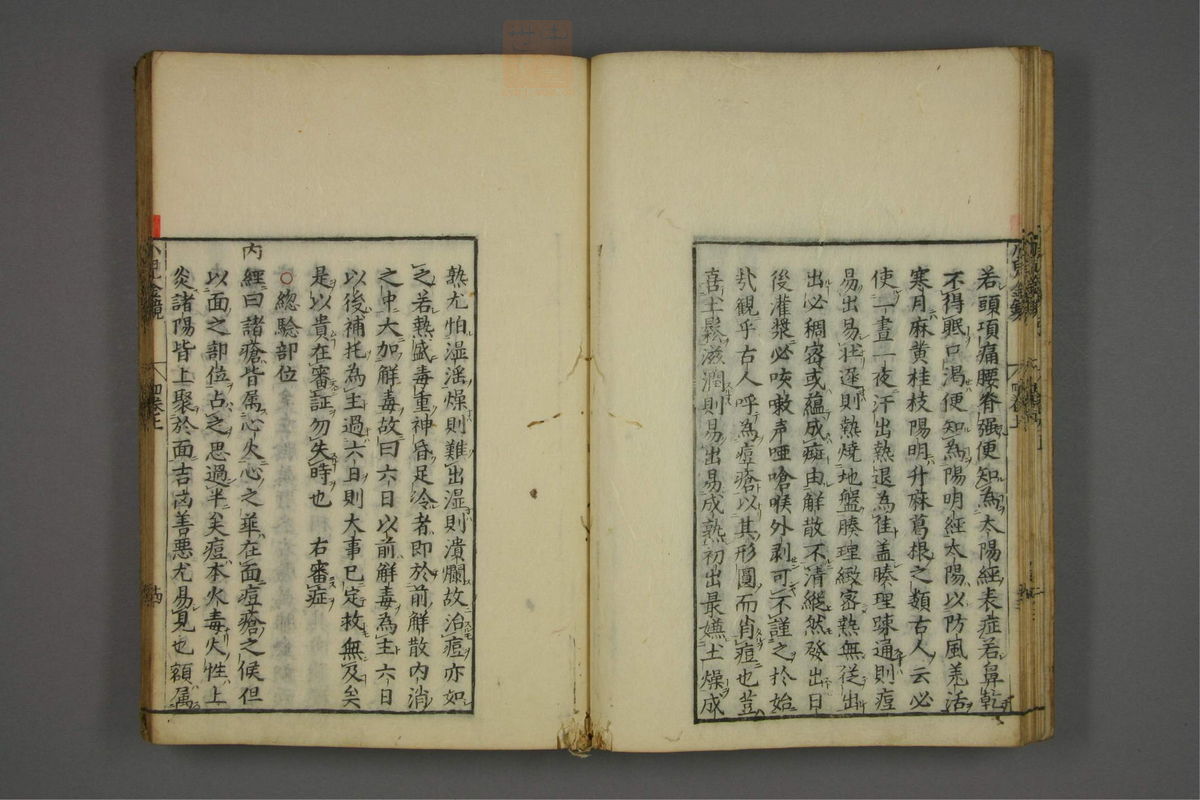 若頭項痛腰脊强便知為太陽經表症若鼻乾
不得眠口渴便知為陽明經太陽以防風羌活
寒月麻黄桂枝陽明升麻葛根之類古人云必
使一晝一夜汗出熱退為佳盖腠理疎通則痘
易出易壮遲則熱燒地盤腠理緻密熱無従出
出必稠密或蘊成癍由解散不清縱然發出日
後灌漿必咳嗽声啞嗆喉外剥可不謹之扵始
㢤觀乎古人呼為痘瘡以其形圓而肖痘也荳
喜土鬆滋潤則易出易成熟初出最嬚土燥成
熟尤怕湿滛燥則難出湿則潰爛故治痘亦如
之若熱盛毒重神昏足冷者即於前解散内消
之中大加解毒故曰六日以前解毒為主六日
以後補托為主過六日則大事已定救無及矣
是以貴在審証勿失時也　右審症
○總驗部位
内經曰諸瘡皆属心火心之華在面痘瘡之候但
以面之部位占之思過半矣痘本火毒火性上
炎諸陽皆上聚於面吉凶善悪尤易見也額属